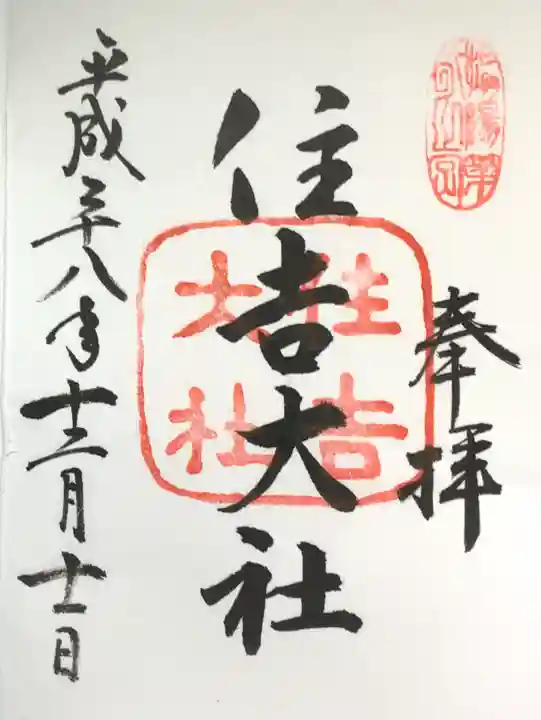 奉拝
住吉大社
住吉
大社
平成二十八年十二月十一日